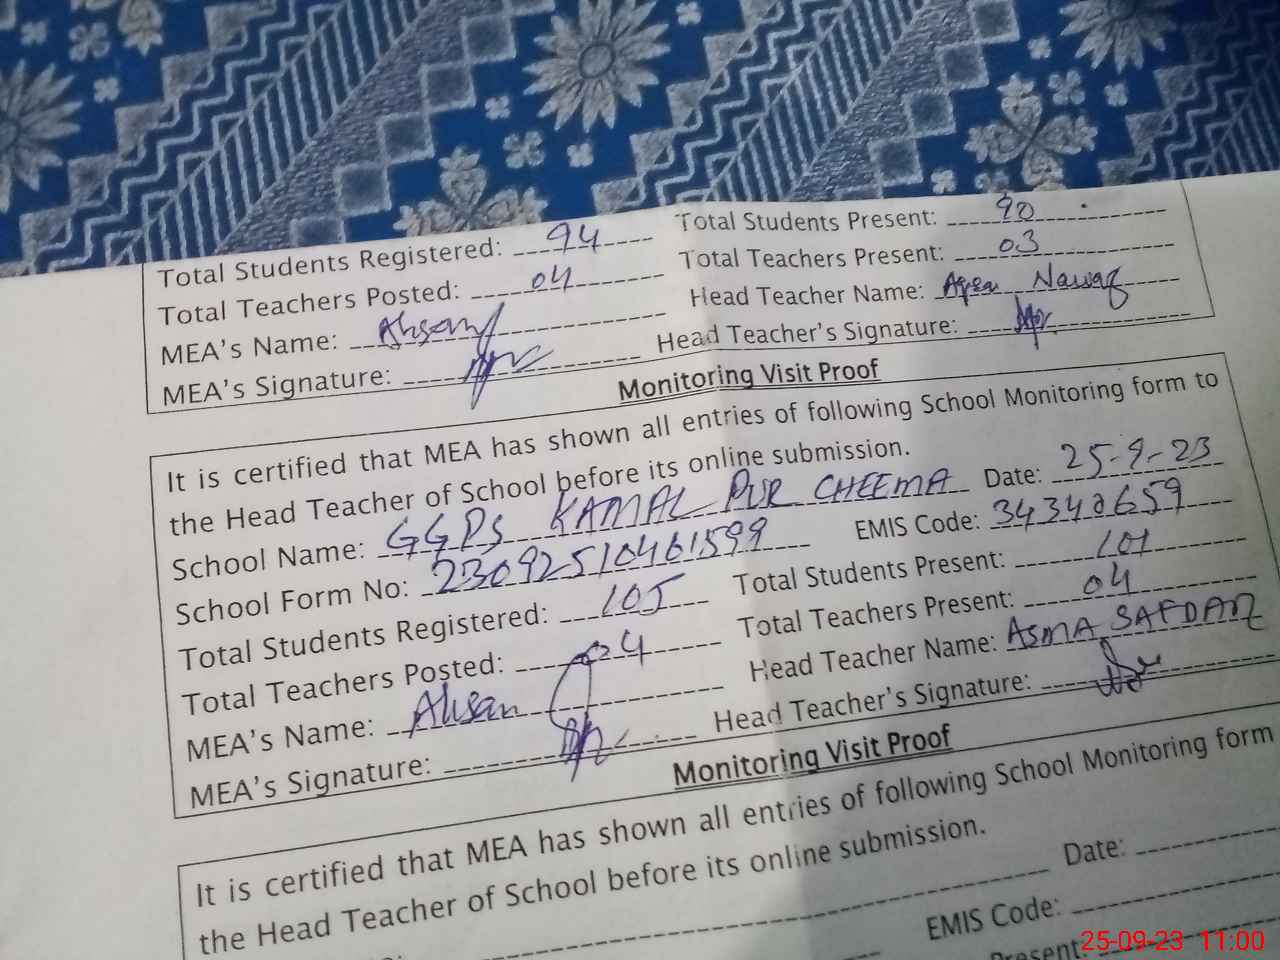 Total Students Registered: 94 Total Students Present: 90
Total Teachers Posted: 04 Total Teachers Present: 03
MEA's Name: Ahsan Head Teacher Name: Nawaz
MEA's Signature: Head Teacher's Signature:
Monitoring Visit Proof
It is certified that MEA has shown all entries of following School Monitoring form to
the Head Teacher of School before its online submission.
School Name: GGPS KAMAL PUR CHEEMA Date: 25-9-23
School Form No: 23092510461599 EMIS Code: 34340659
Total Students Registered: 105 Total Students Present: 101
Total Teachers Posted: 04 Total Teachers Present: 04
MEA's Name: Ahsan Head Teacher Name: ASMA SAFDAR
MEA's Signature: Head Teacher's Signature:
Monitoring Visit Proof
It is certified that MEA has shown all entries of following School Monitoring form
the Head Teacher of School before its online submission.
Date:
EMIS Code:
Present:
25-09-23 11:00